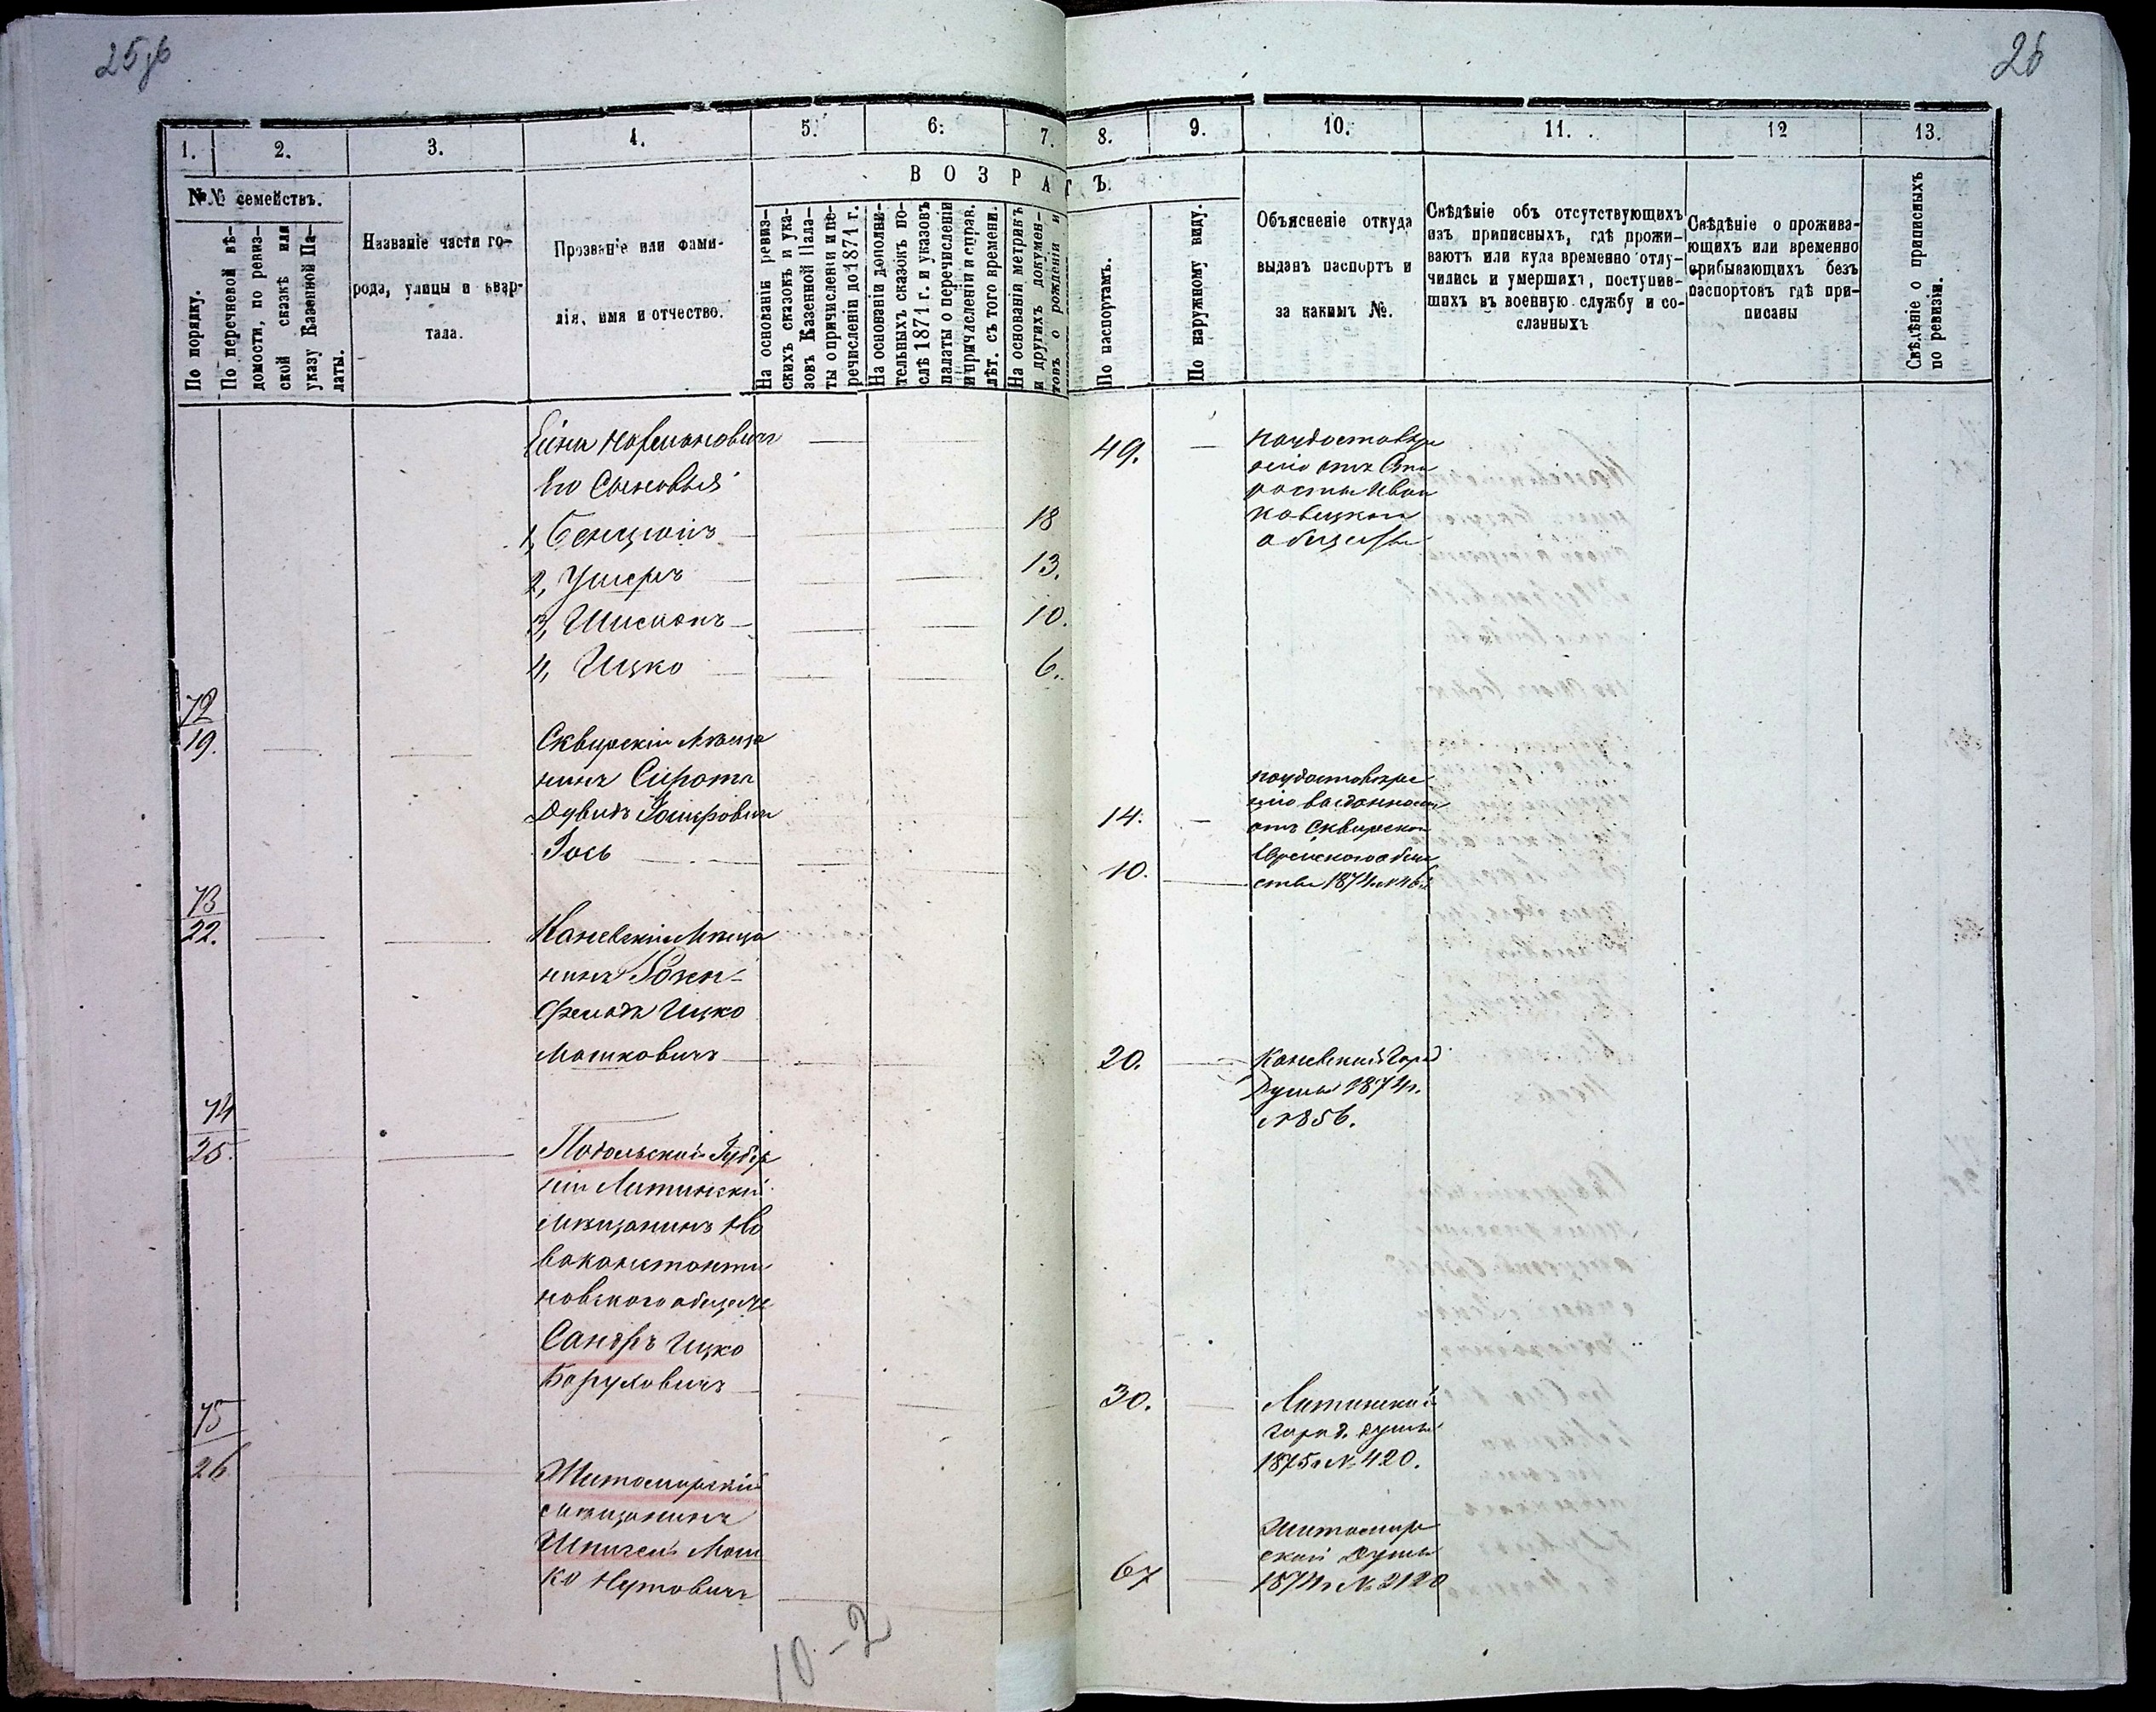 25об
26
1.
2.
3.
4.
5.
6.
7.
8.
9.
10.
11.
12
13.
№№ семействъ.
По порядку.
По перечневой вѣ-
домости, по ревиз-
ской сказкѣ или
указу Казенной Па-
латы.
Названіе части го-
рода, улицы и квар-
тала.
Прозваніе или фами-
лія, имя и отчество.
ВОЗРАСТЪ.
На основаніи ревиз-
скихъ сказокъ и ука-
зовъ Казенной Пала-
ты о причисленіи и пе-
речисленіи до 1871 г.
На основаніи дополни-
тельныхъ сказокъ по-
слѣ 1871 г. и указовъ
палаты о перечисленіи
и причисленіи и справ.
лѣт. съ того времени.
На основаніи метрикъ
и другихъ докумен-
товъ о рожденіи и
По паспортамъ.
По наружному виду.
Объясненіе откуда
выданъ паспортъ и
за какимъ №.
Свѣдѣніе объ отсутствующихъ
изъ приписныхъ, гдѣ прожи-
ваютъ или куда временно отлу-
чились и умершихъ, поступив-
шихъ въ военную службу и со-
сланныхъ
Свѣдѣніе о прожива-
ющихъ или временно
прибывающихъ безъ
паспортовъ гдѣ при-
писаны
Свѣдѣніе о приписныхъ
по ревизіи.
49.
по удостовѣре
нію отъ Ста
росты Иван
ковецкого
Его Сыновья
1, Бенціонъ 18
2, Ушеръ 13.
3, Шисионъ 10.
4, Ицко 6.
72
19.
Сквирскій Мѣща
нинъ Сирота
Дувидъ Іосиповичъ 14.
Іось 10.
по удостовѣре
нію
отъ Сквирского
Еврейского обще
ства 1874 г.
73
22.
Каневскій Мѣща
нинъ Розен-
фельдъ Ицко
Мошковичъ 20.
Каневской Город
Думы 1874 г.
№ 856.
74
25.
Подольской Губер
ніи Литинскій
мѣщанинъ Но
воконстанти
новского общества
Сандръ Ицко
Боруховичъ 30.
Литинской
город. думы
1875 г № 420.
75
26.
Житомирскій
мѣщанинъ
Шпигель Мош
ко Нутовичъ 67
Житомир
ской думы
1874 г № 2120
10-2